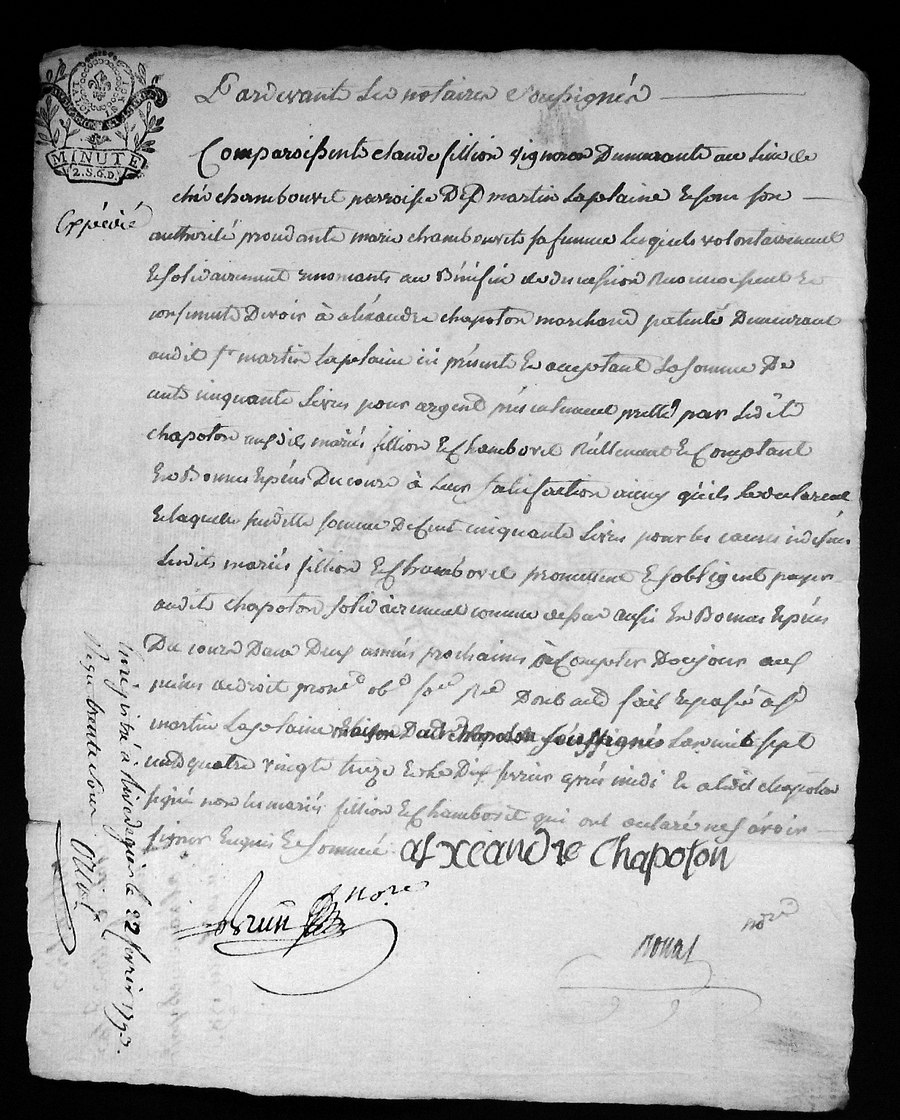 LA LOI
MINUTE
2. S. 6. D.
Expédié
Pardevant Les notaires Soussignés
Comparoissent claude fillion vigneron Demeurante au Lieu de
chés chambouvet parroisse De St martin Laplaine Et sous son
authorité procédante marie chambouvet sa femme Lesquels volontairement
Et solidairement renonçants au Bénéfice de discussion Reconnoissent Et
confessent Devoir à aléxandre chapoton marchand patenté Demeurant
audit St martin Laplaine ici présent Et acceptant La somme De
cent cinquante Livres pour argent présentement pretté par Ledit
chapoton auxdits mariés fillion Et Chambovet Réellement Et Comptant
En Bonnes Espéces Du cours à Leur satisfaction ainsy qu'ils Le déclarent
Et laquelle susditte somme De Cent cinquante Livres pour les causes
Lesdits mariés fillion Et Chambovet promettent Et s'obligent payer
audit chapoton solidairement comme En Bonnes Espéces
Du cours Dans Deux années prochaines à Compter De ce jour aux
peines de droit Dont acte fait Et passé à St
martin Laplaine maison Dudit chapoton soussigné L'an mil sept
cent quatre vingt treize Et Le Dix février après midi Et a Ledit chapoton
signé non Les mariés fillion Et Chambovet qui ont déclaré ne sçavoir
signer Enquis Et sommés
alexeandre Chapoton
Brun nore
nore
Enrégistré à Rivedegier le 22 février 1793.
Reçu trente sous